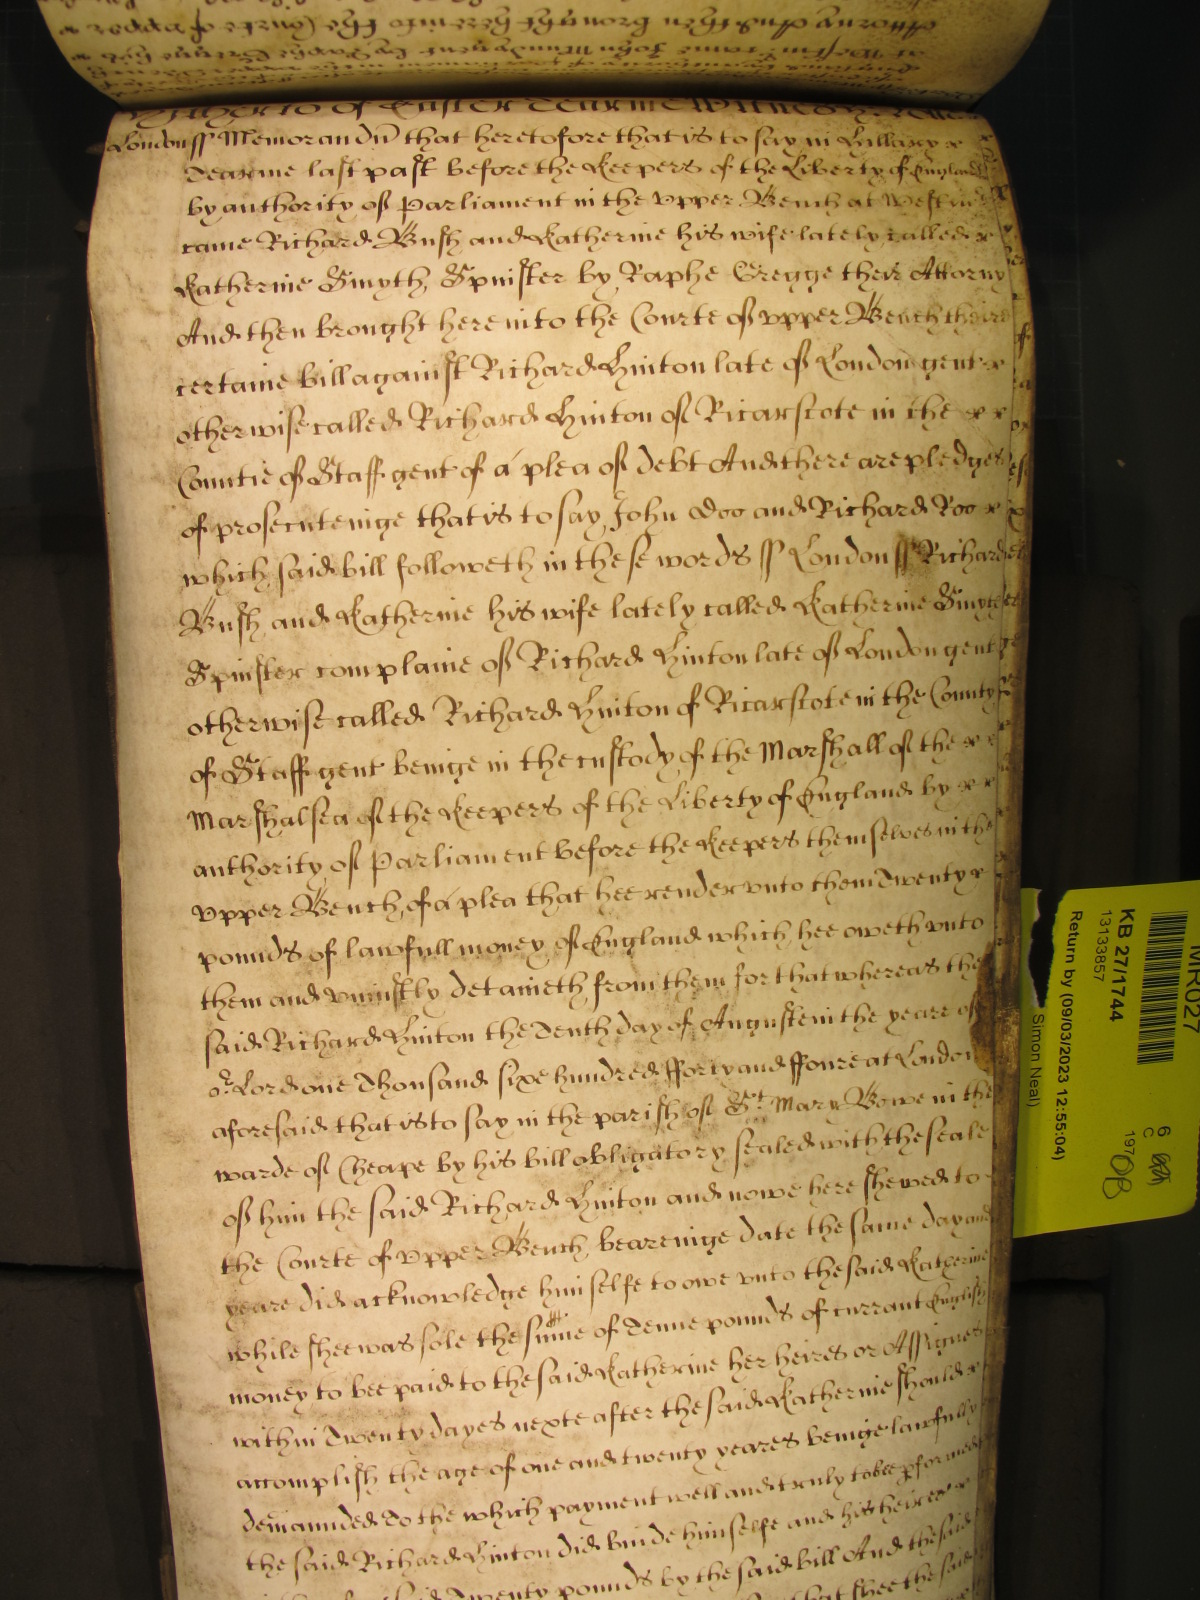 hitherto of Easter Tearme Wittnes
London ss Memorandũ that heretofore that is to say in Hillary x x
Tearme last past before the Keepers of the Liberty of England
by authority of Parliament in the vpper Bench at Westm
came Richard Bush and Katherine his wife lately called x
Katherine Smyth Spinster by Raphe Gregge their Attorny
And then brought here into the Courte of vpper Bench
certaine bill against Richard Hinton late of London gent x
otherwise called Richard Hinton of Ricarscote in the x x
Countie of Staff gent of a plea of debt And there are pledges
of prosecuteinge that is to say John Doo and Richard Roo x
which said bill followeth in these words ss London ss Richard
Bush and Katherine his wife lately called Katherine Smyth
Spinster complaine of Richard Hinton late of London gent
otherwise called Richard Hinton of Ricarscote in the County
of Staff gent beinge in the custody of the Marshall of the x x
Marshalsea of the Keepers of the Liberty of England by x x
authority of Parliament before the Keepers themselves in the
vpper Bench of a plea that hee render vnto them Twenty x
pounds of lawfull money of England which hee oweth vnto
them and vniustly detaineth from them for that whereas the
said Richard Hinton the Tenth day of Auguste in the yeare of
or Lord one Thousand sixe hundred fforty and ffoure at London
aforesaid that is to say in the parish of St Mary Bowe in the
warde of Cheape by his bill obligatory sealed with the seale
of him the said Richard Hinton and nowe here shewed to
the Courte of vpper Bench beareinge date the same day and
yeare did acknowledge himselfe to owe vnto the said Katherine
while shee was sole the sume of Tenne pounds of currant English
money to bee paid to the said Katherine her heires or Assignes
within Twenty dayes nexte after the said Katherine should x
accomplish the age of one and twenty yeares beinge lawfully
demaunded To the which payment well and truly to bee pformed
the said Richard Hinton did binde himselfe and his heires x
said Twenty pounds by the said bill And the said
that shee the said
MR027
KB 27/1744
13133857
Return by (09/03/2023 12:55:04)
Simon Neal)
6
C
197